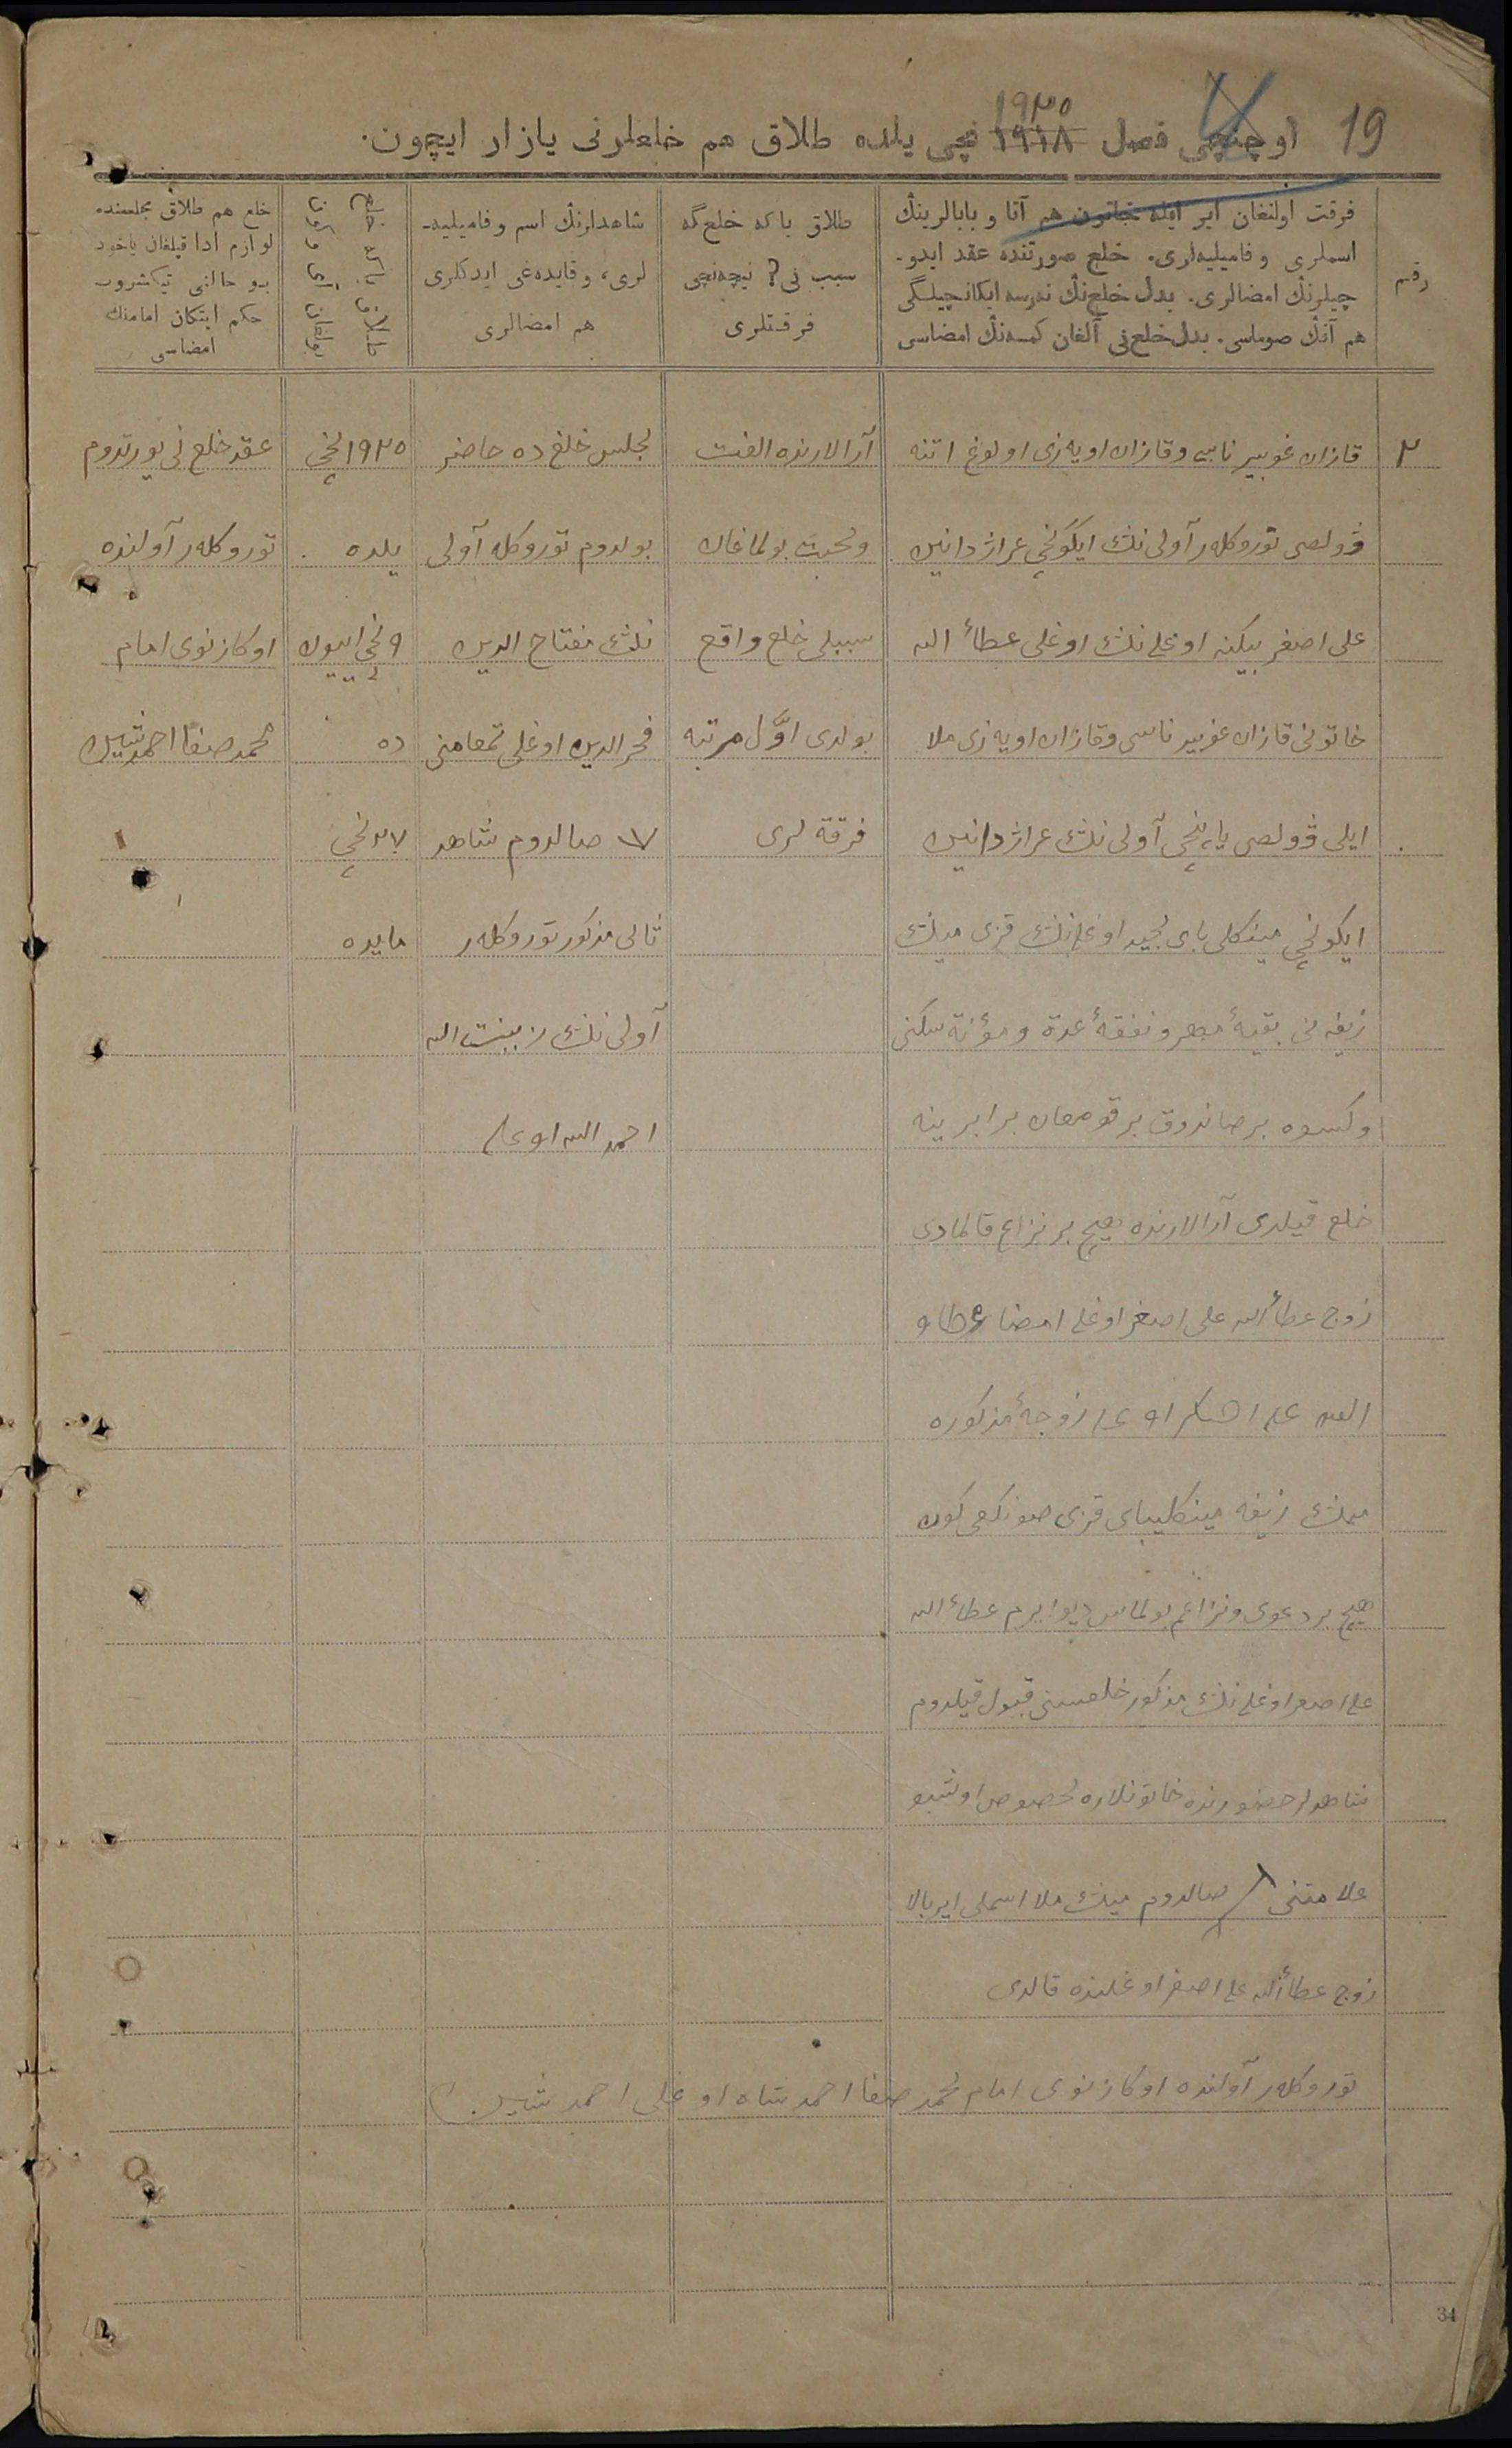 19
١٩٢٥
اوچنچی فصل ١٩١٨ نچی یلده طلاق هم خلعلرنی یازار ایچون.
رقم
فرقت اولنغان ایر ایله خاتون هم آتا و بابالرینڭ
اسملری و فامیلیه‌لری. خلع صورتنده عقد ایدو-
چیلرنڭ امضالری. بدل خلع‌نڭ نەرسه ایکانچیلگی
هم آنڭ صوماسی. بدل خلع‌نی آلغان کمسەنڭ امضاسی
طلاق یا که خلع گه
سبب نی؟ نیچەنچی
فرقتلری
شاهدلرنڭ اسم و فامیلیه-
لری، و قایده‌غی ایدکلری
هم امضالری
خلع یا که طلاق
بولغان آی و کون
خلع هم طلاق مجلسنده
لوازم ادا قیلغان یاخود
بو حالنی تیکشروب
حکم ایتکان امامنڭ
امضاسی
٢
قازان غوبیرناسی و قازان اویه‌زی اولوغ اتنه
ڤولصی توروکلەر آولی ننڭ ایکونچی عراژدانین
علی اصغر بیکنه اوغلی ننڭ اوغلی عطاء الله
خاتونی قازان غوبیرناسی و قازان اویه‌زی ملا
ایلی ڤولصی یاڭچی آولی ننڭ عراژدانین
ایکونچی مینکلی بای اوغلی ننڭ قزی مینڭ
زیفه نی بقیهٔ مهر و نفقهٔ عدة و مؤنة سکنی
وکسوه بر صاندوق بر قومغان برابرینه
خلع قیلدی آرالارنده هیچ بر نزاع قالمادی
زوج عطاءالله علی اصغر اوغلی امضا عطا
الله علی زوجهٔ مذکوره
مینڭ زیفه مینکلیبای قزی صونکغی کون
هیچ بر دعوی و نزاعم بولماس دیو ایرم عطاءالله
علی اصغر اوغلی ننڭ مذکور خلعسنی قبول قیلدوم
شاهدلر حضورنده خاتونلاره مخصوص اوشبو
علامتنی صالدوم مینڭ ملا اسملی ایر بالا
زوج عطاءالله علی اصغر اوغلنده قالدی
توروکلەر آولنده اوکازنوی امام محمدصفا احمدشاه اوغلی احمدشین
آرالارنده الفت
ومحبت بولماغان
سببلی خلع واقع
بولدی اوّل مرتبه
فرقة لری
مجلس خلع ده حاضر
بولدوم توروکلە آولی
ننڭ مفتاح الدین
فخرالدین اوغلی تمغامنی
صالدوم شاهد
ثانی مذکور توروکلەر
آولی ننڭ زینت الله
احمدالله اوغلی
١٩٢٥ نچی
یلده
٩ نچی اییون
ده
نچی
مایده
عقد خلع نی یورتدوم
توروکلەر آولنده
اوکازنوی امام
محمدصفا احمدشین
34